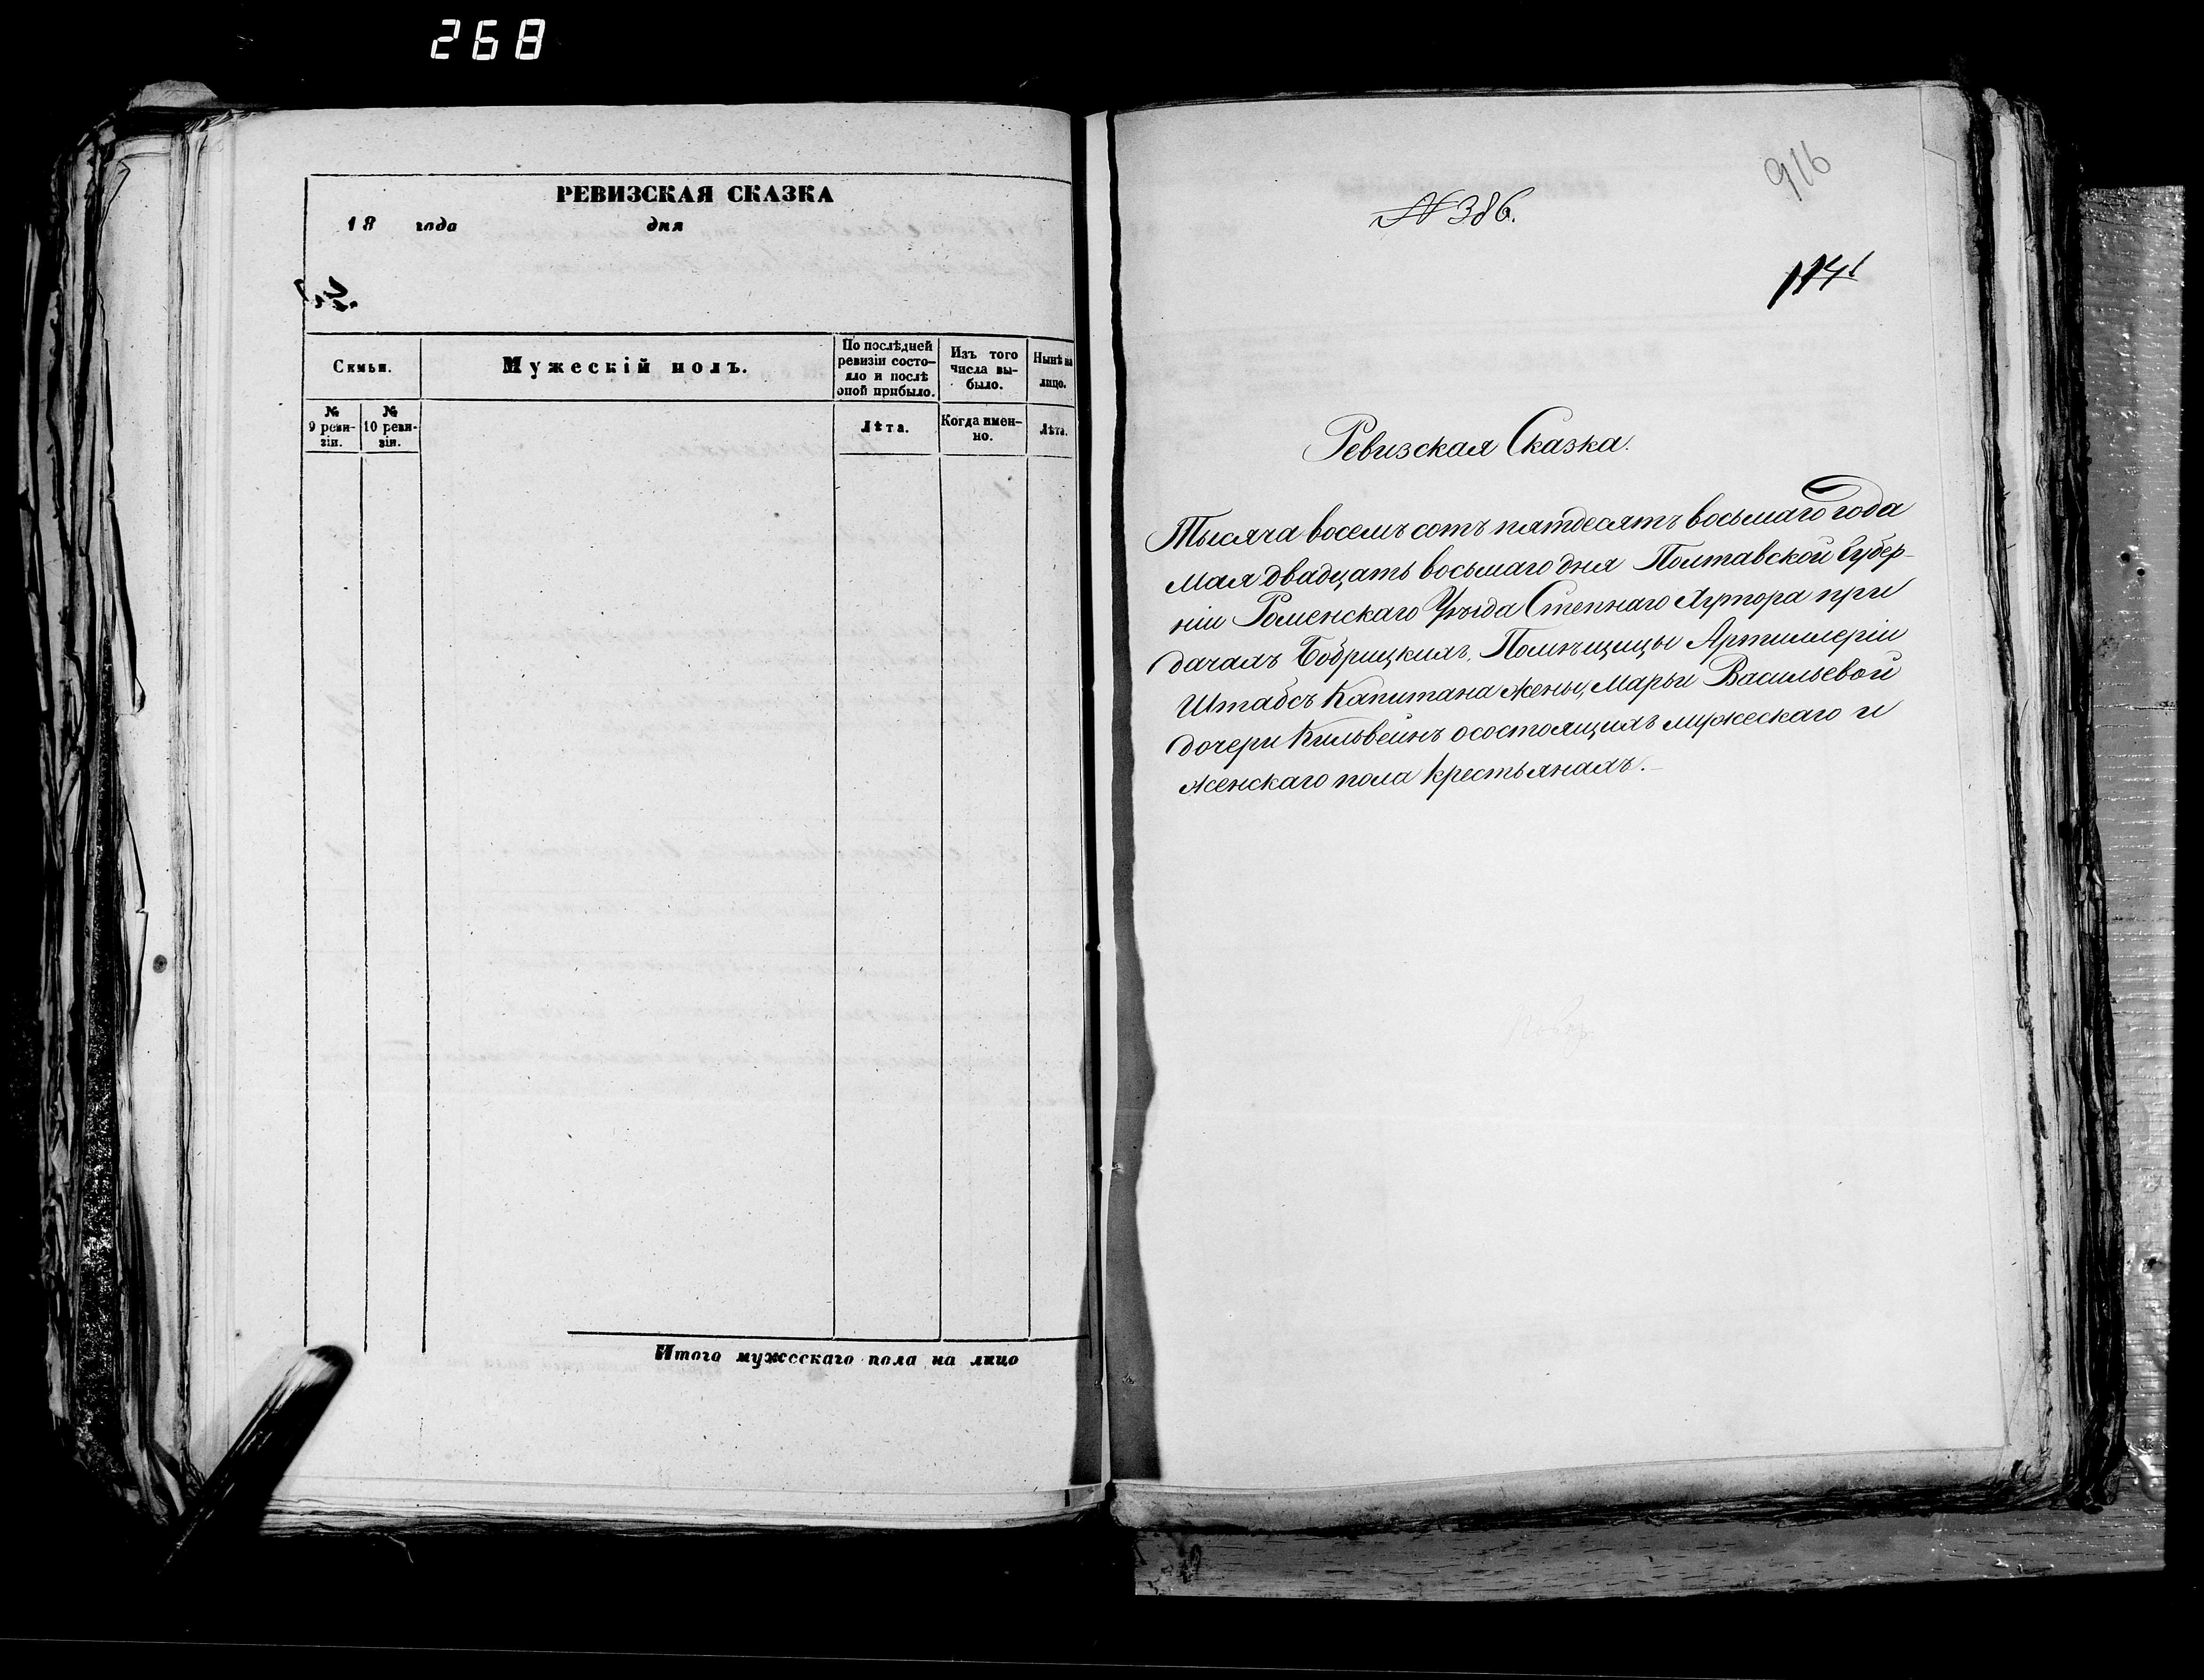 268
РЕВИЗСКАЯ СКАЗКА
18 года дня
Семьи.
Мужескій полъ.
По послѣдней ревизіи состо-яло и послѣ оной прибыло.
Изъ того числа вы-было.
Нынѣ на лицо.
№ 9 реви-зіи.
№ 10 реви-зіи.
Лѣта.
Когда имен-но.
Лѣта.
Итого мужескаго пола на лицо
916
№ 386.
Ревизская Сказка.
Тысяча восемъ сотъ пятдесятъ восьмаго года
Мая двадцать восьмаго дня Полтавской Губер-
ніи Роменскаго Уѣзда Степнаго Хутора при
дачахъ Бобрицкихъ, Помѣщицы Артиллеріи
Штабсъ Капитана жены, Марьи Васильевой
дочери Кильвейнъ о состоящихъ мужескаго и
женскаго пола крестьянахъ.—